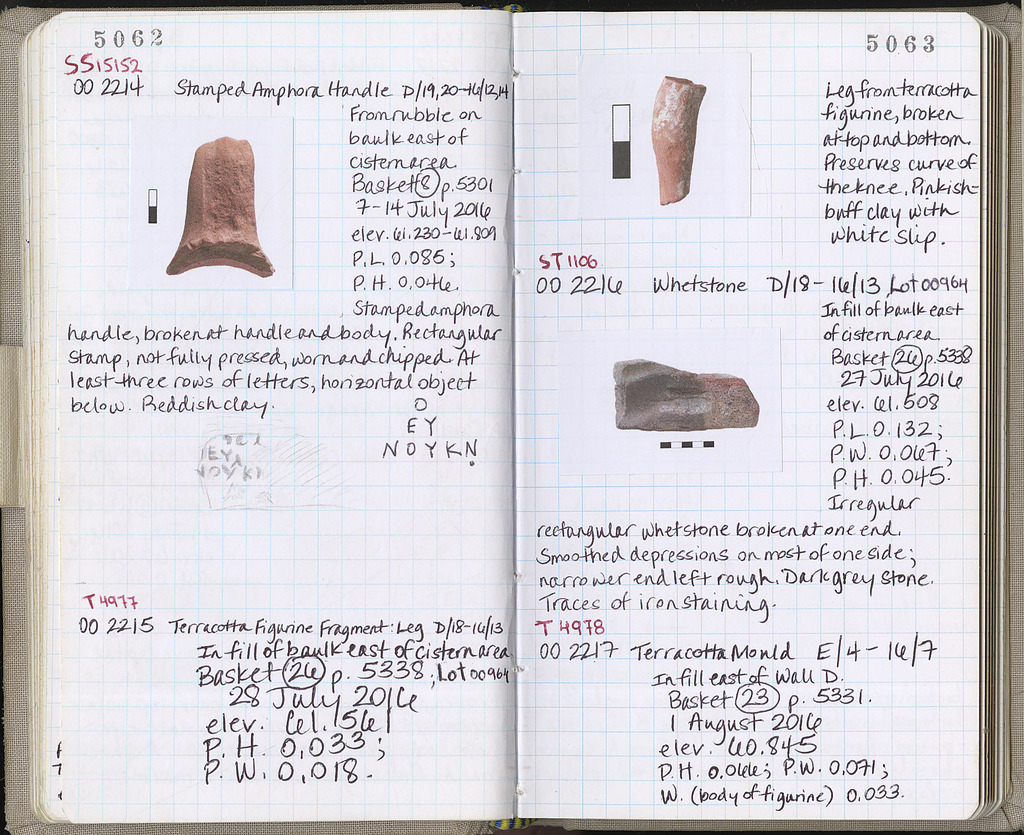 5062
SS15152
OO 2214 Stamped Amphora Handle D/19,20-16/13,14
From rubble on
baulk east of
cistern area.
Basket 8 p. 5301
7-14 July 2016
elev. 61.230-61.809
P.L. 0.085;
P.H. 0.046.
Stamped amphora
handle, broken at handle and body. Rectangular
stamp, not fully pressed, worn and chipped. At
least three rows of letters, horizontal object
below. Reddish clay.
O
EY
NOYKṆ
EY
NOYKI
T 4977
OO 2215 Terracotta Figurine Fragment: Leg D/18-16/13
In fill of baulk east of cistern area
Basket 26 p. 5338; Lot 00964
28 July 2016
elev. 61.561
P.H. 0.033;
P.W. 0.018.
5063
Leg from terracotta
figurine, broken
at top and bottom.
Preserves curve of
the knee. Pinkish-
buff clay with
white slip.
ST 1106
OO 2216 Whetstone D/18-16/13 Lot 00964
In fill of baulk east
of cistern area
Basket 26 p. 5338
27 July 2016
elev. 61.508
P.L. 0.132;
P.W. 0.067;
P.H. 0.045.
Irregular
rectangular whetstone broken at one end.
Smoothed depressions on most of one side;
narrower end left rough. Dark grey stone.
Traces of iron staining.
T 4978
OO 2217 Terracotta Mould E/4-16/7
In fill east of Wall D.
Basket 23 p. 5331.
1 August 2016
elev. 60.845
P.H. 0.066; P.W. 0.071;
W. (body of figurine) 0.033.